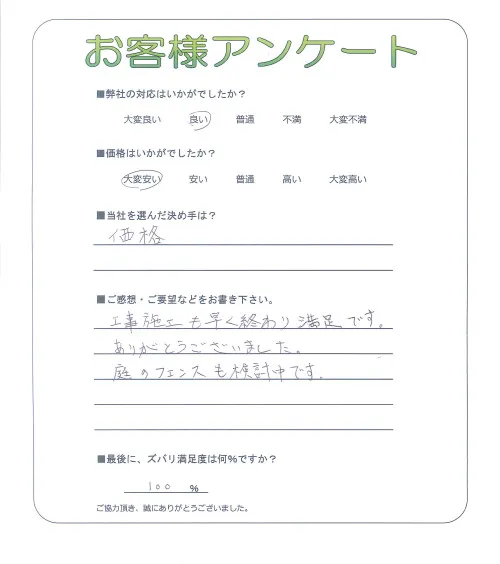 お客様アンケート
■弊社の対応はいかがでしたか？
大変良い 良い 普通 不満 大変不満
■価格はいかがでしたか？
大変安い 安い 普通 高い 大変高い
■当社を選んだ決め手は？
価格
■ご感想・ご要望などをお書き下さい。
工事施工も早く終わり満足です。
ありがとうございました。
庭のフェンスも検討中です。
■最後に、ズバリ満足度は何％ですか？
100 %
ご協力頂き、誠にありがとうございました。